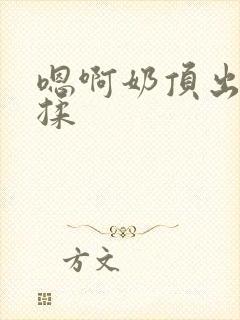 嗯啊奶頂出
揉
方文